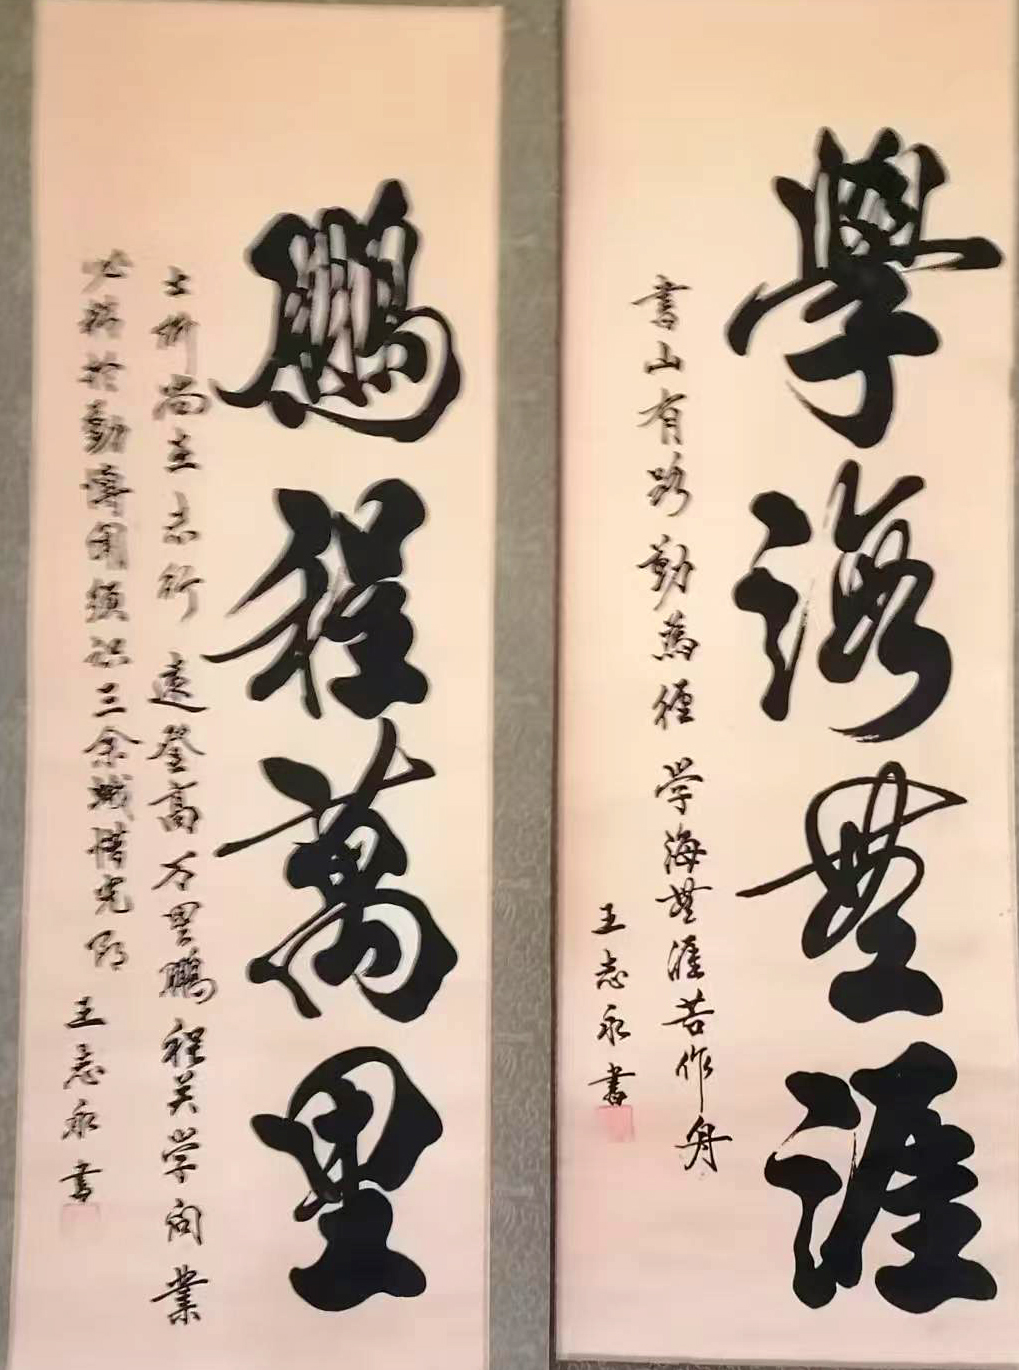 學海無涯
書山有路勤為徑 学海無涯苦作舟
王志永書
鵬程萬里
士所尚在志行遠登高万里鵬程关学问業
必精於勤博闻识三余惜光阴
王志永書